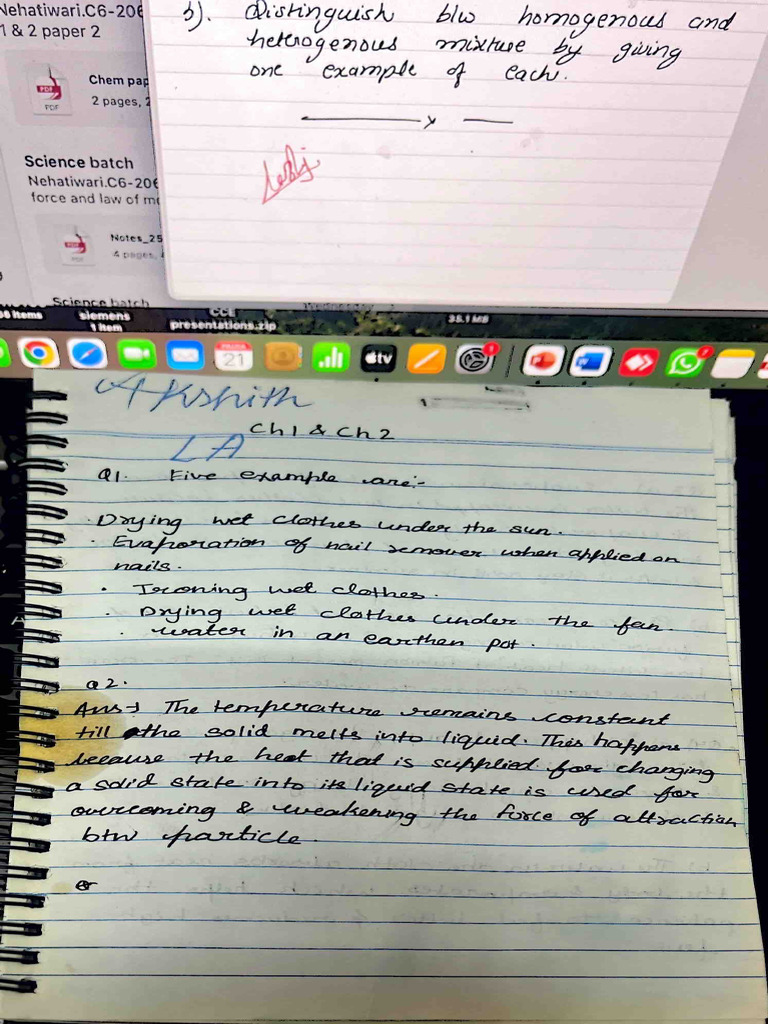 Nehatiwari.C6-206
1 & 2 paper 2
PDF
PDF
Chem pap
2 pages, 2
Science batch
Nehatiwari.C6-206
force and law of mo
PDF
PDF
Notes_25
4 pages,
Science batch
b). Distinguish b/w homogenous and
heterogenous mixture by giving
one example of each.
siemens
1 item
CCE
presentations.zip
35.1 MB
21
tv
Akshith
LA
Ch1 & Ch2
Q1. Five example are:-
· Drying wet clothes under the sun.
· Evaporation of nail remover when applied on
nails.
· Ironing wet clothes.
· Drying wet clothes under the fan.
· water in an earthen pot.
Q2.
Ans→ The temperature remains constant
till the solid melts into liquid. This happens
because the heat that is supplied for changing
a solid state into its liquid state is used for
overcoming & weakening the force of attraction
btw particle.